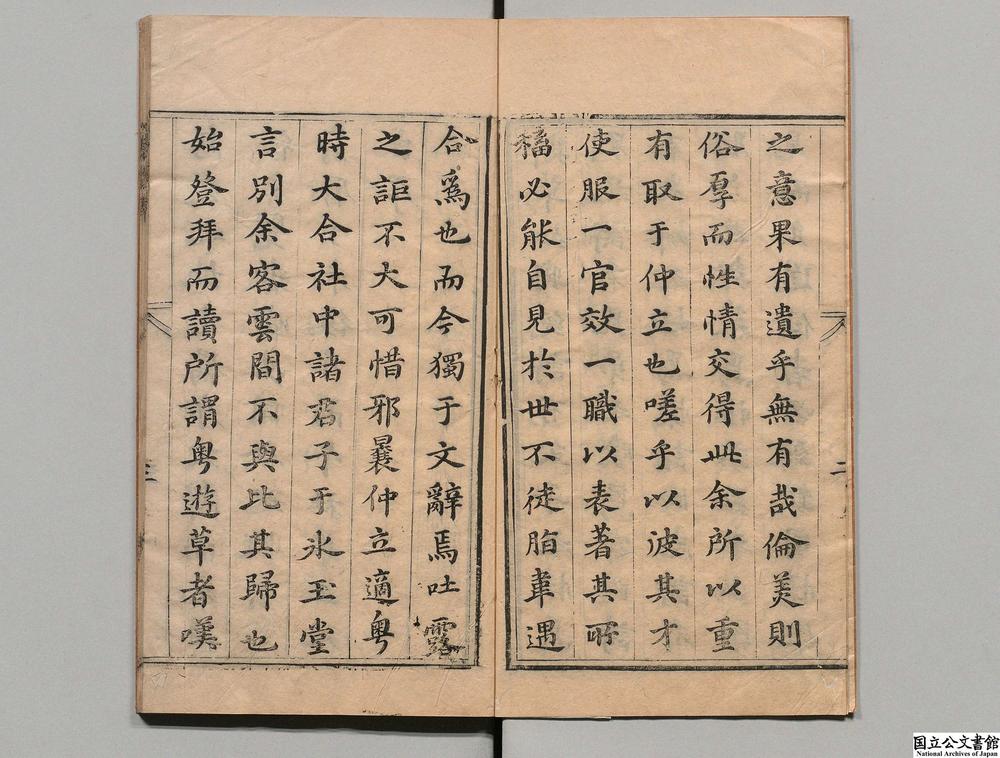 之意果有遺乎無有哉倫美則
俗厚而性情交得此余所以重
有取于仲立也嗟乎以波其才
使服一官效一職以表著其所
必能自見於世不徒脂韋遇
合爲也而今獨于文辭焉吐露
之詎不大可惜邪曩仲立適粤
時大合社中諸君子于氷玉堂
言別余客雲間不與比其歸也
始登拜而讀所謂粤遊草者嘆
二
三
国立公文書館
National Archives of Japan